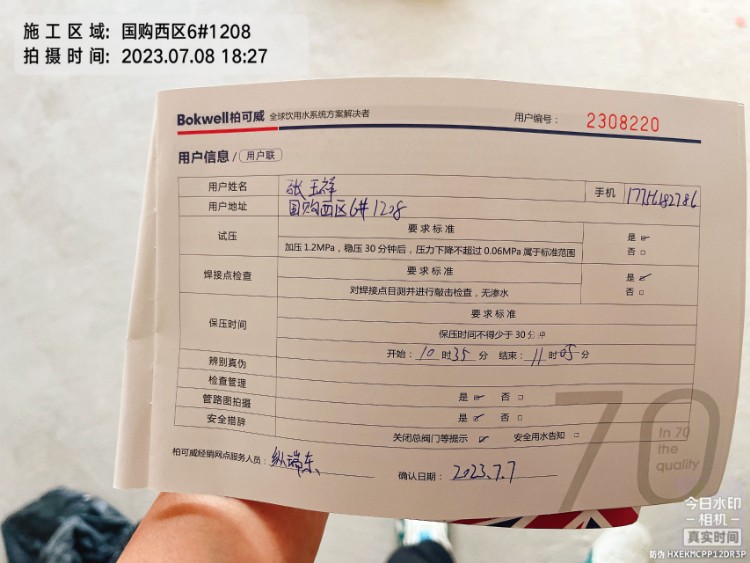 施工区域: 国购西区6#1208
拍摄时间: 2023.07.08 18:27
Bokwell柏可威 全球饮用水系统方案解决者 用户编号: 2308220
用户信息 / 用户联
用户姓名 张玉祥 手机 17756182786
用户地址 国购西区6#1208
试压 要求标准 是 ☑
加压1.2MPa，稳压30分钟后，压力下降不超过0.06MPa属于标准范围 否 □
焊接点检查 要求标准 是 ☑
对焊接点目测并进行敲击检查，无渗水 否 □
保压时间 要求标准
保压时间不得少于30分钟
开始: 10 时 35 分 结束: 11 时 05 分
辨别真伪
检查管理 是 ☑ 否 □
管路图拍摄 是 ☑ 否 □
安全措辞 关闭总阀门等提示 ☑ 安全用水告知 □
柏可威经销网点服务人员: 纵端东 确认日期: 2023.7.7
70
In 70
the
quality
今日水印
相机
真实时间
防伪 HXEKMCPP12DR3P